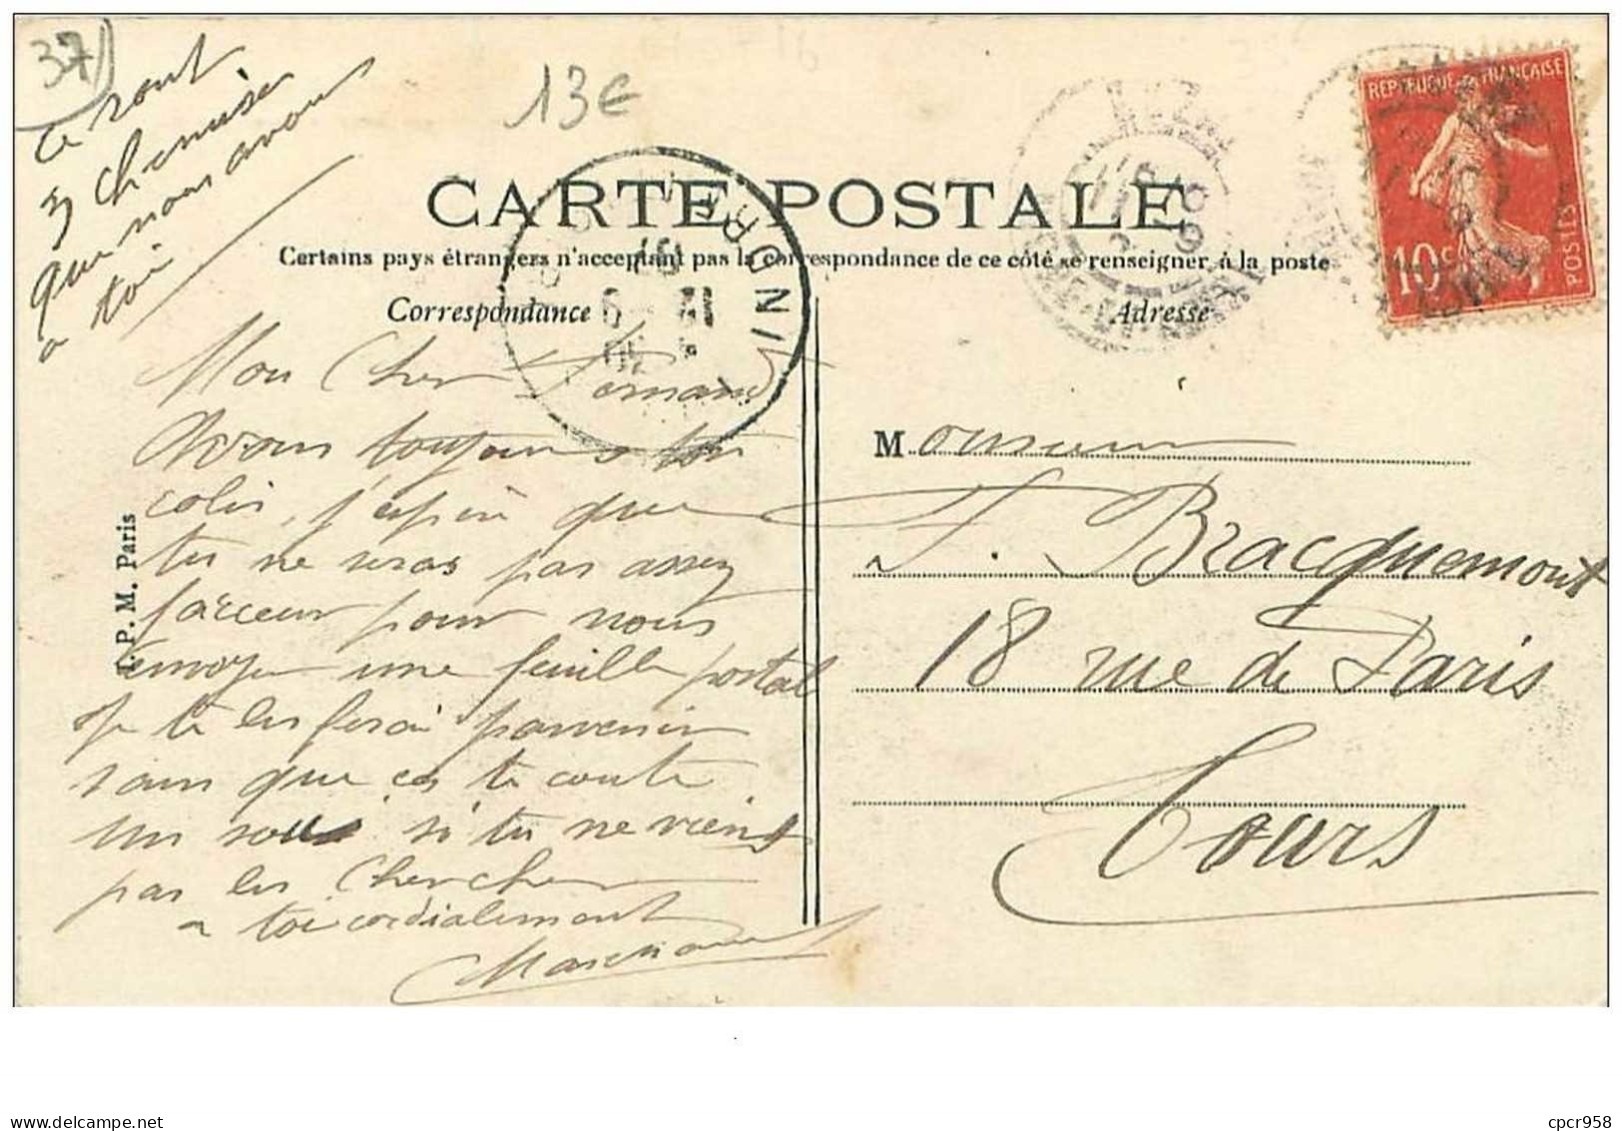 37
13€
ce sont
3 chemises
que nous avons
a toi
CARTE POSTALE
Certains pays étrangers n'acceptant pas la correspondance de ce côté se renseigner à la poste
Correspondance
Adresse
REPUBLIQUE FRANÇAISE
10c
POSTES
Mon Cher Fernand
Avons toujours ton
colis, j'espère que
tu ne seras pas assez
farceur pour nous
envoyer une feuille postal
je te les ferai parvenir
sans que ça te coute
un sous si tu ne viens
pas les chercher
a toi cordialement
C. P. M., Paris
Monsieur
F. Bracquemont
18 rue de Paris
Tours
www.delcampe.net
cpcr958